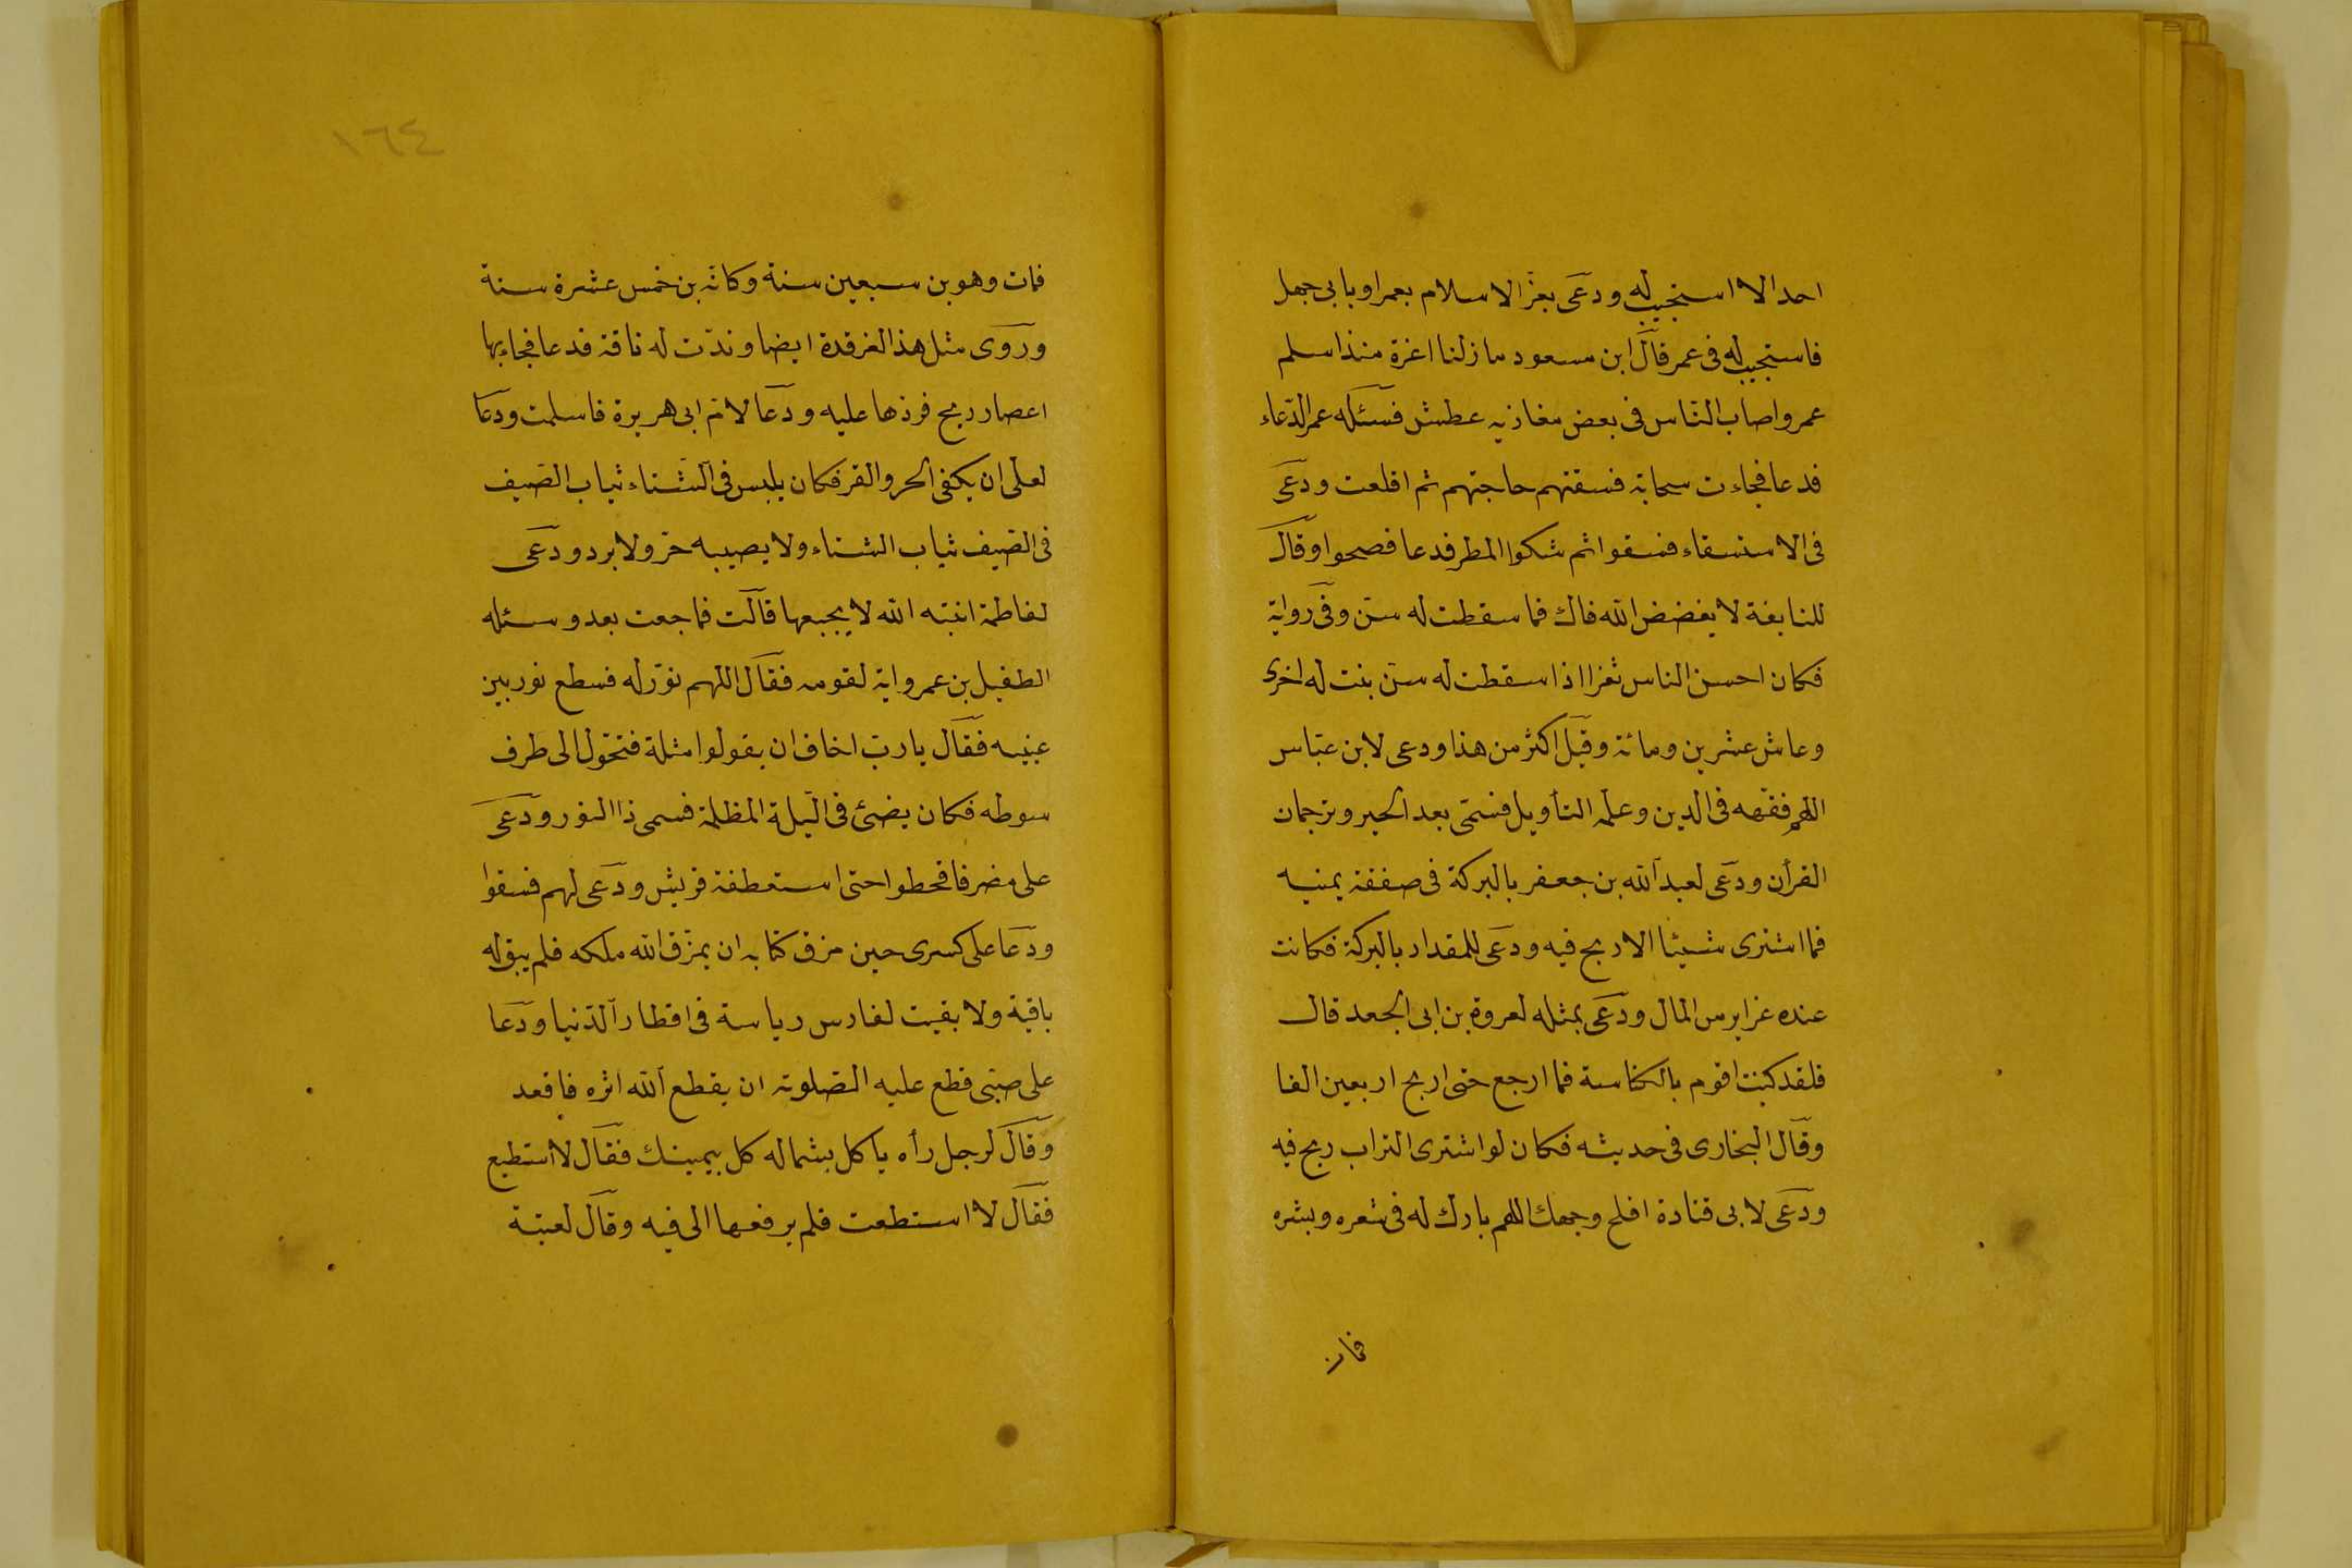 احد الا استجيب له ودعى بعز الاسلام بعمر او بابى جهل
فاستجيب له فى عمر قال ابن مسعود ما زلنا اعزة منذ اسلم
عمر واصاب النّاس فى بعض مغازيه عطش فسئله عمر الدّعاء
فدعا فجاءت سحابة فسقتهم حاجتهم ثم اقلعت ودعى
فى الاستسقاء فسقوا ثم شكوا المطر فدعا فصحوا وقال
للنابغة لا يفضض الله فاك فما سقطت له سنّ وفى رواية
فكان احسن الناس ثغرا اذا سقطت له سنّ بنت له اخرى
وعاش عشرين ومائة وقيل اكثر من هذا ودعى لابن عبّاس
اللهم فقهه فى الدين وعلمه التأويل فسمّى بعد الحبر وترجمان
القرأن ودعى لعبد الله بن جعفر بالبركة فى صفقة يمنيه
فما اشترى شيئا الا ربح فيه ودعى للمقداد بالبركة فكانت
عنده غراير من المال ودعى بمثله لعروة بن ابى الجعد قال
فلقد كنت اقوم بالكناسة فما ارجع حتى اربح اربعين الفا
وقال البخارى فى حديثه فكان لو اشترى التراب ربح فيه
ودعى لابى قتادة افلح وجهك اللهم بارك له فى شعره وبشره
فمات
١٦٤
فمات وهو بن سبعين سنة وكانه بن خمس عشرة سنة
وروى مثل هذا لغرقدة ايضا وندّت له ناقة فدعا فجاء بها
اعصار ريح فردها عليه ودعا لامّ ابى هريرة فاسلمت ودعا
لعلى ان يكفى الحر والقر فكان يلبس فى الشتاء ثياب الصّيف
فى الصّيف ثياب الشتاء ولا يصيبه حرّ ولا برد ودعى
لفاطمة ابنته الله لا يجيعها قالت فما جعت بعد وسئله
الطفيل بن عمرو اية لقومه فقال اللهم نوّر له فسطع نور بين
عينيه فقال يا ربّ اخاف ان يقولوا مثلة فتحوّل الى طرف
سوطه فكان يضئ فى الّيلة المظلمة فسمى ذا النور ودعى
على مضر فاقحطوا حتى استعطفته قريش ودعى لهم فسقوا
ودعا على كسرى حين مزق كتابه ان يمزّق الله ملكه فلم يبق له
باقية ولا بقيت لفارس رياسة فى اقطار الدّنيا ودعا
على صبّى قطع عليه الصّلوة ان يقطع الله اثره فاقعد
وقال لرجل رأه ياكل بشماله كل بيمينك فقال لا استطيع
فقال لا استطعت فلم يرفعها الى فيه وقال لعتبة